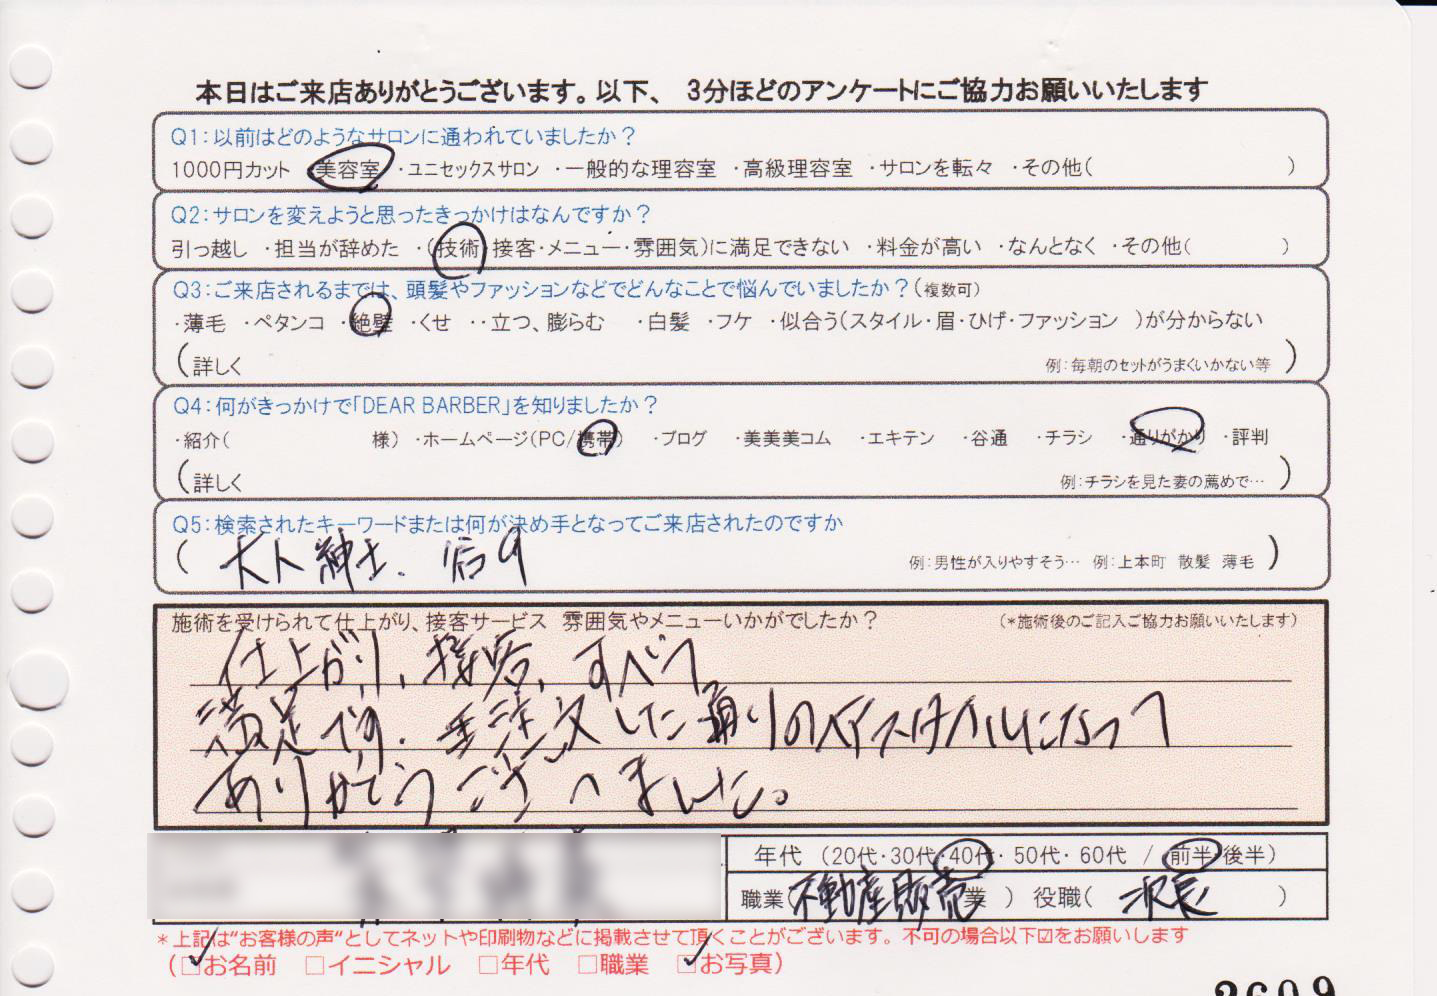 本日はご来店ありがとうございます。以下、 3分ほどのアンケートにご協力お願いいたします
Q1:以前はどのようなサロンに通われていましたか？
1000円カット ・美容室 ・ユニセックスサロン ・一般的な理容室 ・高級理容室 ・サロンを転々 ・その他( )
Q2:サロンを変えようと思ったきっかけはなんですか？
引っ越し ・担当が辞めた ・(技術・接客・メニュー・雰囲気)に満足できない ・料金が高い ・なんとなく ・その他( )
Q3:ご来店されるまでは、頭髪やファッションなどでどんなことで悩んでいましたか？(複数可)
・薄毛 ・ペタンコ ・絶壁 ・くせ ・・立つ、膨らむ ・白髪 ・フケ ・似合う(スタイル・眉・ひげ・ファッション )が分からない
(詳しく 例:毎朝のセットがうまくいかない等 )
Q4:何がきっかけで「DEAR BARBER」を知りましたか？
・紹介( 様) ・ホームページ(PC/携帯) ・ブログ ・美美美コム ・エキテン ・谷通 ・チラシ ・通りがかり ・評判
(詳しく 例:チラシを見た妻の薦めで… )
Q5:検索されたキーワードまたは何が決め手となってご来店されたのですか
( 大人紳士. 例:男性が入りやすそう… 例:上本町 散髪 薄毛 )
施術を受けられて仕上がり、接客サービス 雰囲気やメニューいかがでしたか？ (*施術後のご記入ご協力お願いいたします)
仕上がり、接客、すべて
満足です. 注文した通りのヘアスタイルになって
ありがとうございました。
年代 (20代・30代・40代・50代・60代 / 前半・後半)
職業(不動産販売業 ) 役職( 次長 )
*上記は“お客様の声“としてネットや印刷物などに掲載させて頂くことがございます。不可の場合以下☑をお願いします
(☑お名前 □イニシャル □年代 □職業 ☑お写真)
2609